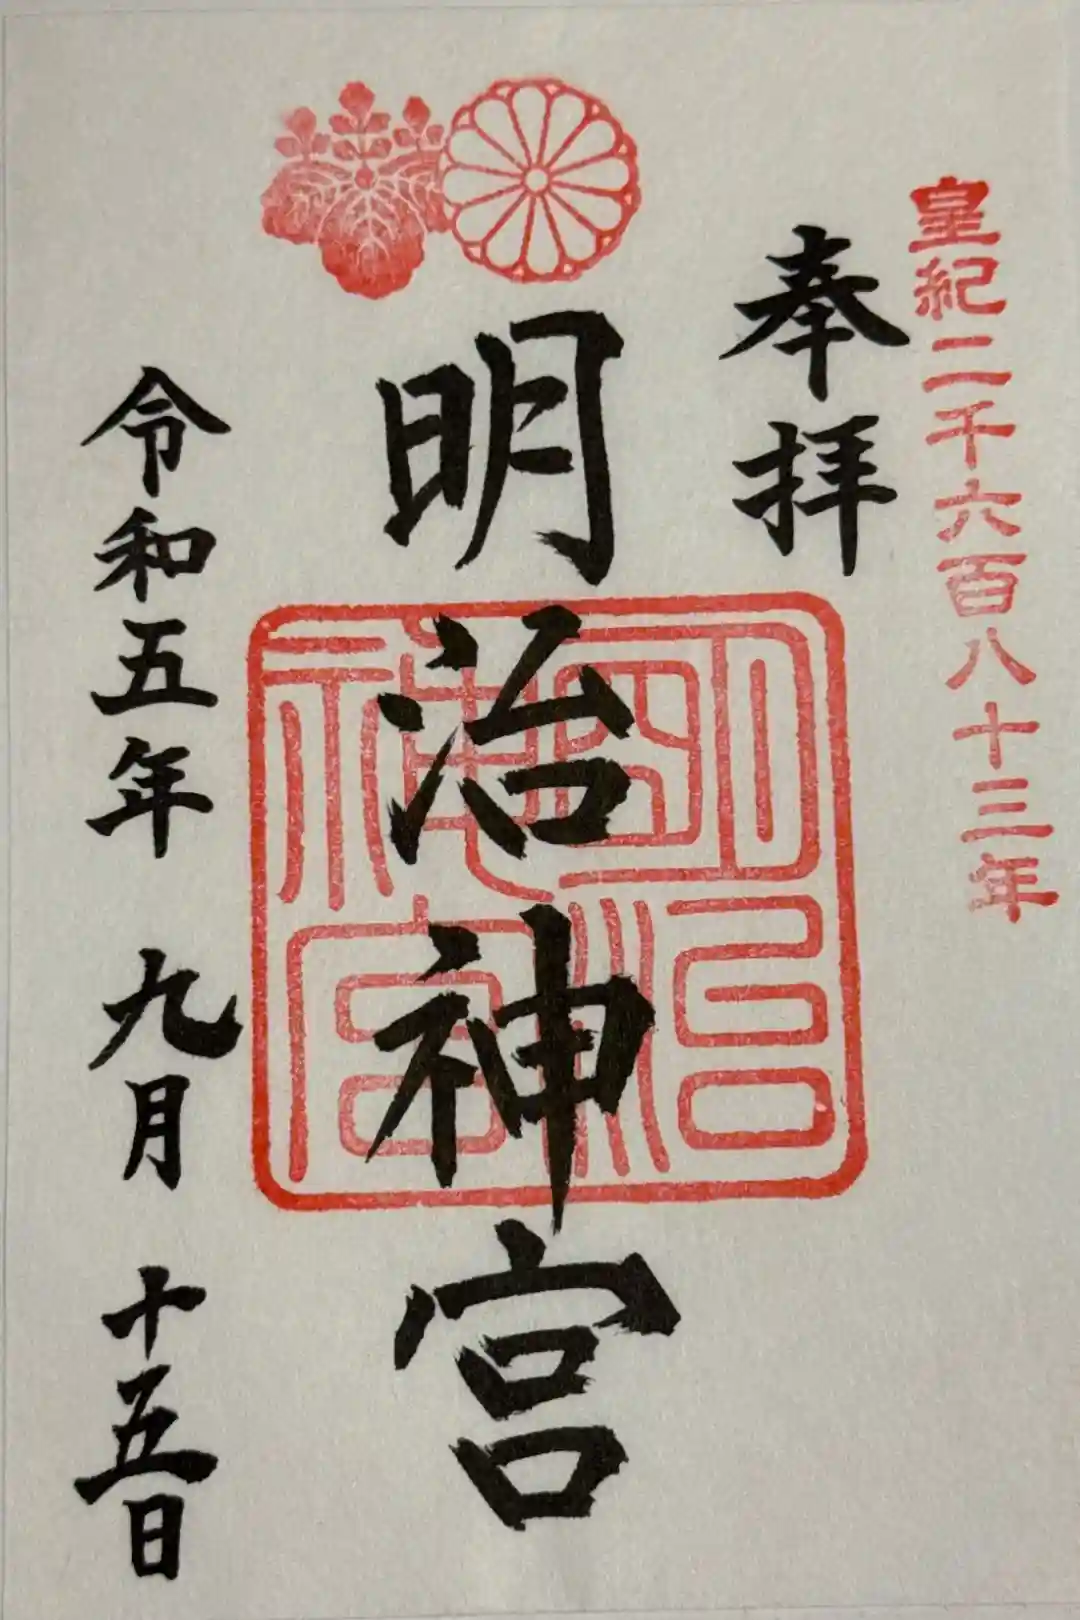 皇紀二千六百八十三年
奉拝
明治神宮
明治神宮
令和五年 九月 十五日